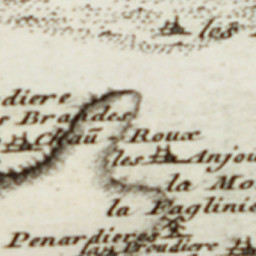 les
diere
Brandes
Chaū Roux
les Anjou
la Mo
la Faglinie
Penardieres
la Proudiere